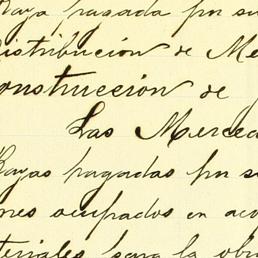 Raya pagada por su
Distribución de Me
onstrucción de
Las Merced
Rayas pagadas por s
nes ocupados en aco
teriales para la obr